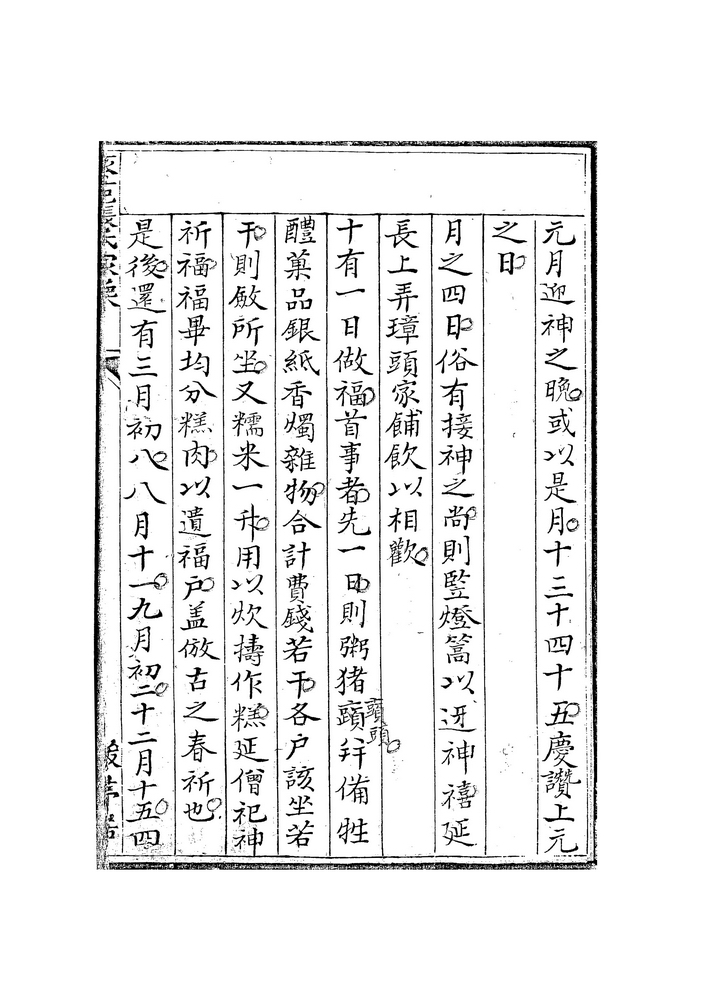 元月迎神之晚或以是月十三十四十五慶讚上元
之日
月之四日俗有接神之尚則豎燈篙以迓神禧延
長上弄璋頭家餔飲以相歡
十有一日做福首事者先一日則粥猪𩔗𩔗頭拜備牲
醴菓品銀紙香燭雜物合計費錢若干各户該坐若
干則斂所坐又糯米一升用以炊擣作糕延僧祀神
祈福福畢均分糕肉以遺福户盖倣古之春祈也
是後還有三月初八八月十一九月初二十二月十五四
張氏家